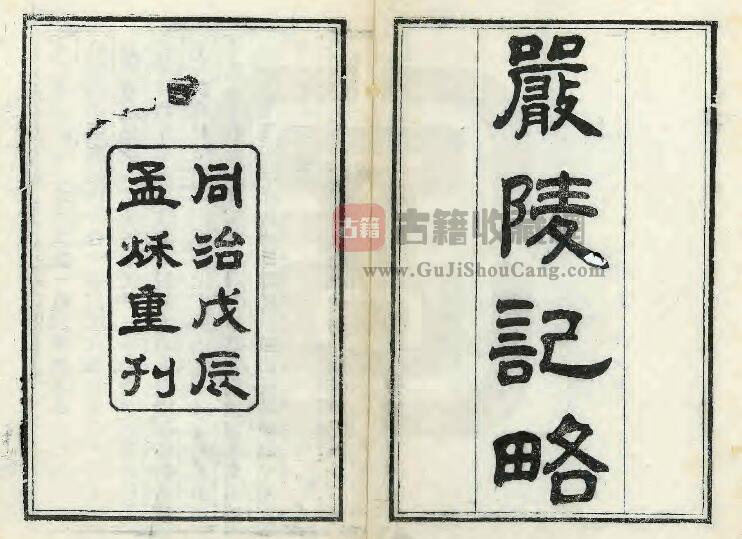 嚴陵記略
同治戊辰
孟秌重刊
古籍 古籍收藏网
www.GuJiShouCang.com